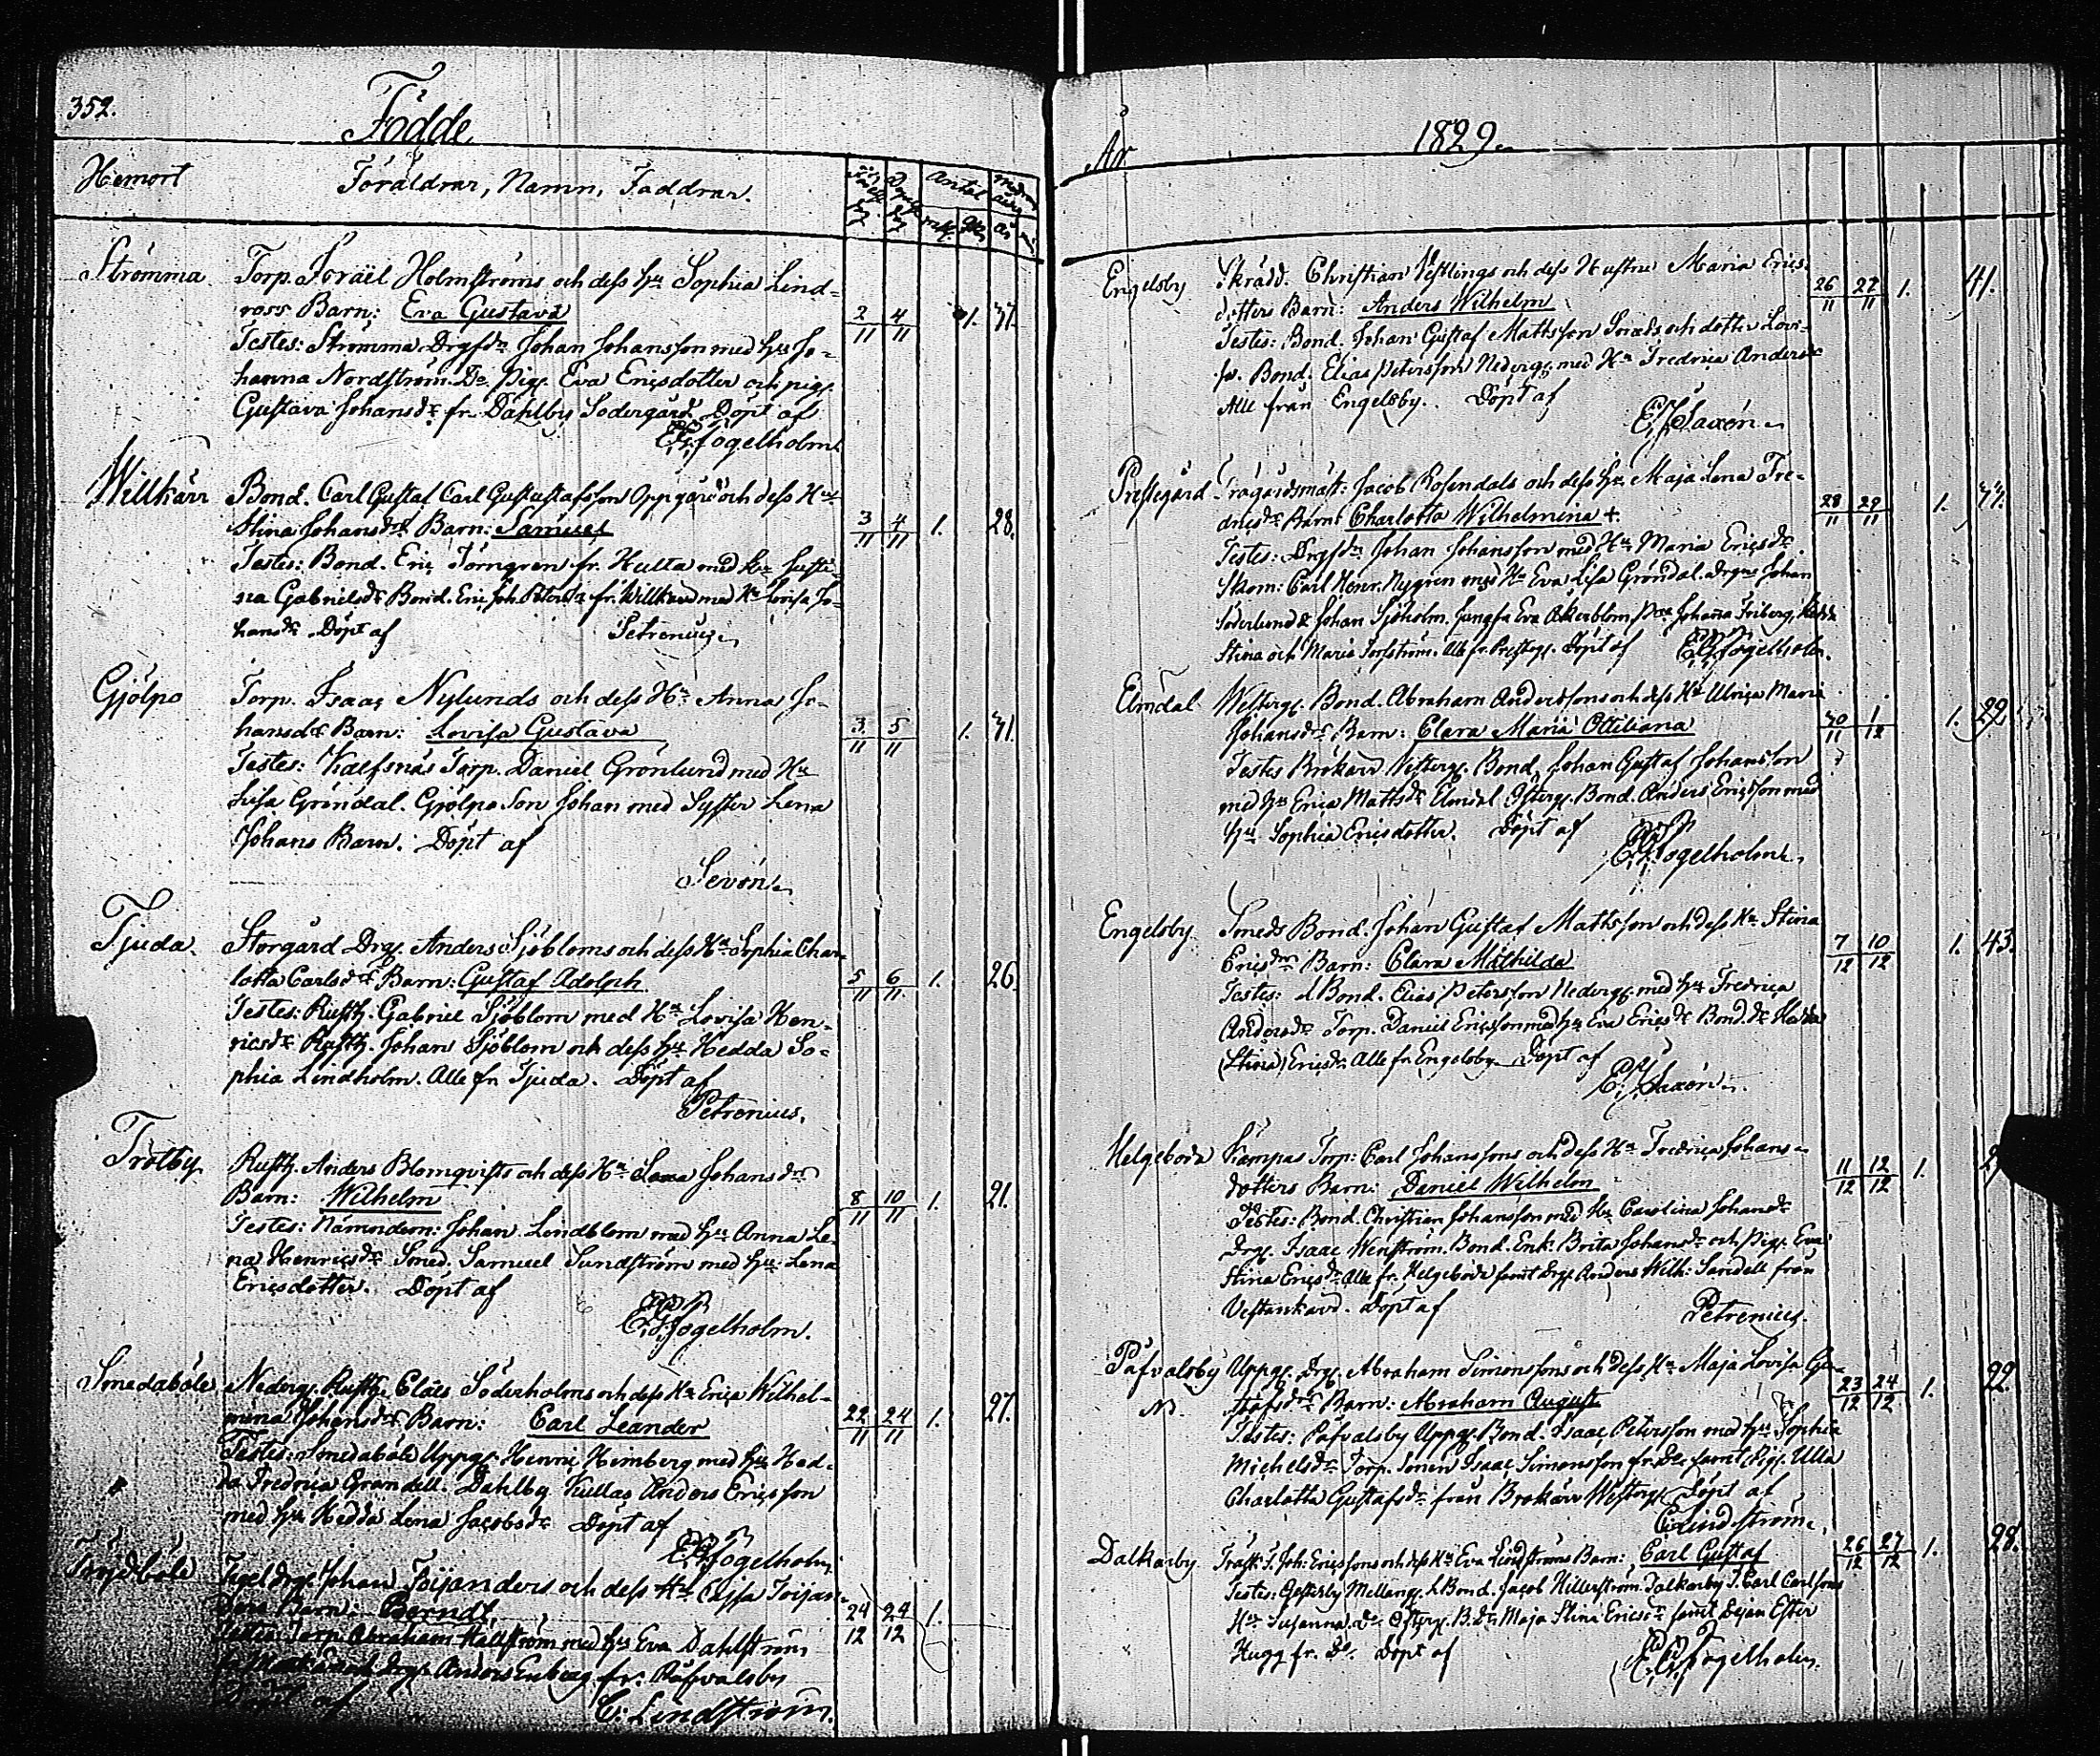 352.
Födde
Hemort
Föräldrar, Namn, Faddrar.
Antal
Strömma
Torp. Israël Holmströms och dess Hu Sophia Lind=
ross Barn: Eva Gustava
2/11 4/11 1. 31.
Testes: Strömma Drgfdn Johan Johansson med Hu Jo=
hanna Nordström. Do Pigs. Eva Ericsdotter och pigs.
Gustava Johansdr fr. Dahlby Södergård Döpt af
Fogelholm
Willkärr
Bond. Carl Gustaf Carl Gustafsson Oppgård och dess Hus
Stina Johansdrs Barn: Samuel
3/11 4/11 1. 28.
Testes: Bond. Eric Törngren fr. Hulta med Hu Justi
na Gabrielsdr Bond. Eric Joh. fr. Willkärr med Hu Lovisa Jo=
hansdr. Döpt af
Petrenius
Gjölpo
Torp. Isaac Nylunds och dess Hu Anna Jo=
hansdrs Barn: Lovisa Gustava
3/11 5/11 1. 31.
Testes: Kalfsnäs Torp. Daniel Grönlund med Hu
Lisa Gröndal. Gjölpo Son Johan med Syster Lena
Johans Barn. Döpt af
Sevón
Tjuda.
Storgård Drg. Anders Sjöbloms och dess Hu Sophia Char=
lotta Carlsdrs Barn: Gustaf Adolph
5/11 6/11 1. 26.
Testes: Rusth. Gabriel Sjöblom med Hu Lovisa Hen=
ricsdr Rusth. Johan Sjöblom och dess Hu Hedda So=
phia Lindholm. Alle fr. Tjuda. Döpt af
Petrenius.
Trotby
Rusth. Anders Blomqvists och dess Hu Lena Johansdrs
Barn: Wilhelm
8/11 10/11 1. 21.
Testes: Nämndem: Johan Lindblom med Hu Anna Le=
na Henricsdr Smed. Samuel Sundström med Hu Lena
Ericsdotter. Döpt af
Fogelholm.
Smedaböle
Nederg. Rusth. Claës Söderholms och dess Hu Erica Wilhel=
mina Johansdrs Barn: Carl Leander
22/11 24/11 1. 27.
Testes: Smedaböle Uppg. Henric Heimberg med Hu Hed=
da Fredrica Grandell. Dahlby Kullas Anders Ericsson
med Hu Hedda Lena Jacobsdr Döpt af
Fogelholm
Fröjdböle
Johan Foijanders och dess Hu Cajsa Foijan=
ders Barn: Berndt.
24/12 24/12 1.
Testes: Torp. Abraham Hallström med Hu Eva Dahlström
Drg. Anders Enberg fr. Påfvalsby
Döpt af
C: Lindström.
År
1829.
Engelsby
Skrädd. Christian Vestlings och dess Hustru Maria Erics=
dotters Barn: Anders Wilhelm
26/11 27/11 1. 41.
Testes: Bond. Johan Gustaf Mattsson Smeds och dotter Lovi=
sa. Bond. Elias Petersson Nederg. med Hu Fredrica Andersdr
Alle från Engelsby. Döpt af
E. J. Saxén
Prestegård
Trägårdsmäst: Jacob Rosendals och dess Hu Maja Lena Fre=
dricsdrs Barn: Charlotta Wilhelmina +.
28/11 29/11 1. 37.
Testes: Drgfdn Johan Johansson med Hu Maria Ericsdr.
Skom: Carl Henr. Nygren med Hu Eva Lisa Gröndal. Johan
Söderlund & Johan Sjöholm. Jungfu Eva Åkerblom, Johanna Friberg, Hedda
Stina och Maria Forsström. Alle fr. Prestg. Döpt af Fogelholm.
Elmdal
Westerg. Bond. Abraham Anderssons och dess Hu Ulrica Maria
Johansdrs Barn: Clara Maria Ottiliana
30/11 1/12 1. 29.
Testes Brokärr Westerg. Bond. Johan Gustaf Johansson
med Hu Erica Mattsdr Elmdal Österg. Bond. Anders Ericsson med
Hu Sophia Ericsdotter. Döpt af
Fogelholm
Engelsby
Smeds Bond. Johan Gustaf Mattsson och dess Hu Stina
Ericsdrs Barn: Clara Mathilda
7/12 10/12 1. 43.
Testes: Bond. Elias Petersson Nederg. med Hu Fredrica
Andersdr Torp. Daniel Ericsson med Hu Eva Ericsdr Bond. dr Hedda
(Stina) Ericsdr Alle fr. Engelsby Döpt af
E. J. Saxén
Helgeboda
Kampas Torp: Carl Johanssons och dess Hu Fredrica Johans=
dotters Barn: Daniel Wilhelm
11/12 12/12 1.
Testes: Bond. Christian Johansson med Hu Carolina Johansdr
Drg. Isaac Wenström. Bond. Enk. Brita Johansdr och Pig. Eva
Stina Ericsdr Alle fr. Helgeboda samt Drg. Anders Wilh: Sandell från
Vestankärr. Döpt af Petrenius.
Påfvalsby
Uppg. Drg. Abraham Simonssons och dess Hu Maja Lovisa Gu=
stafsdrs Barn: Abraham August
23/12 24/12 1. 22.
Testes: Påfvalsby Uppg. Bond. Isaac Petersson med Hu Sophia
Michelsdr Torp. Sonen Isaac Simonsson fr. Do samt Pig. Ulla
Charlotta Gustafsdr från Brokärr Westerg. Döpt af
C: Lindström.
Dalkarby
Joh: Ericssons och dess Hu Eva Lindströms Barn: Carl Gustaf
26/12 27/12 1. 28.
Testes: Gesterby Mellang. Bond. Jacob Hillerström. Dalkarby T. Carl Carlsson
Hu Susanna. Do Österg. B. dr Maja Stina Ericsdr samt Ester
Hugg fr. Do. Döpt af Fogelholm.